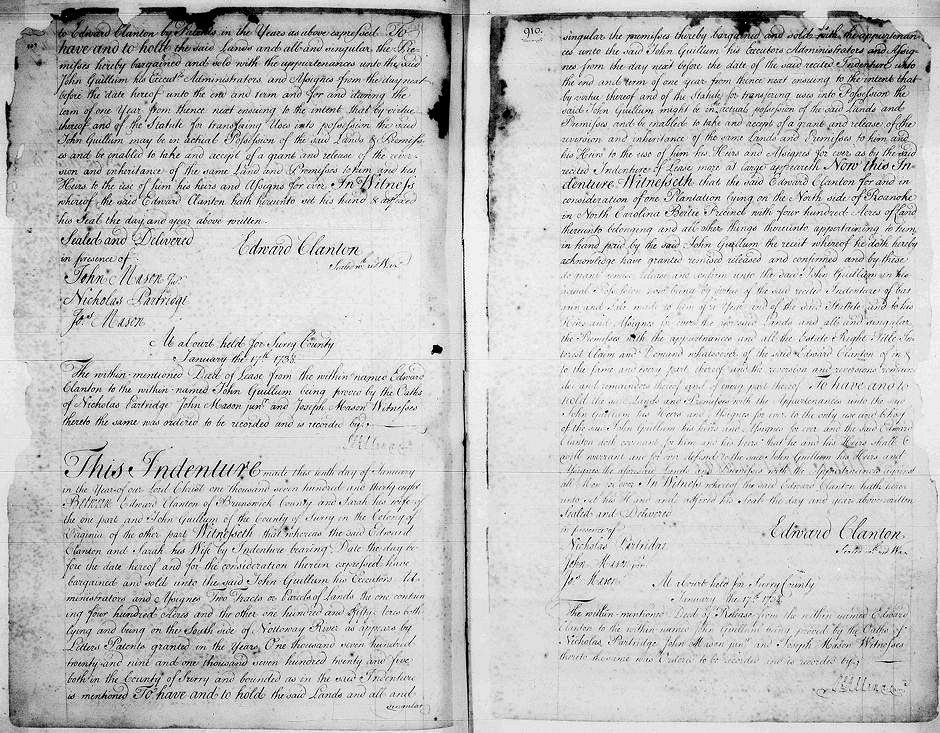 to Edward Clanton by Patents in the Years as above expressed. To
have and to hold the said Lands and all and singular, the Pre-
misses hereby bargained and sold with the appurtenances unto the said
John Guillum his Execut.rs Administrators, and Assignes from the day next
before the date hereof unto the end and term and for and during the
term of one Year from thence next ensuing to the intent that by virtue
thereof and of the Statute for transfering Uses into possession the said
John Guillum may be in actual Possession of the said Lands & Premiss-
es and be enabled to take and accept of a grant and release of the rever-
sion and inheritance of the same Land and Premisses to him and his
Heirs to the use of him his heirs and Assigns for ever In Witness
whereof the said Edward Clanton hath hereunto set his hand & affixed
his Seal the day and year above written
Sealed and Delivered
Edward Clanton
in presence of
John Mason Jr.
Nicholas Partridge
Jos. Mason
At a Court held for Surry County
January the 17th 1738
The within-mentioned Deed of Lease from the within named Edward
Clanton to the within-named John Guillum being proved by the Oaths
of Nicholas Partridge John Mason junr and Joseph Mason Witnesses
thereto the same was ordered to be recorded and is recorded by
This Indenture made this tenth day of January
in the Year of our Lord Christ one thousand seven hundred and thirty eight
Between Edward Clanton of Brunswick County and Sarah his wife of
the one part and John Guillum of the County of Surry in the Colony of
Virginia of the other part Witnesseth that whereas the said Edward
Clanton and Sarah his Wife by Indenture bearing Date the day be-
fore the date hereof and for the consideration therein expressed have
bargained and sold unto the said John Guillum his Executors Ad-
ministrators and Assignes Two Tracts or Parcels of Lands the one contain
ing four hundred Acres and the other one hundred and fifty Acres both
lying and being on the South side of Nottoway River as appears by
Letters Patents granted in the Years, One thousand seven hundred
twenty and nine and one thousand seven hundred twenty and five
both in the County of Surry and bounded as in the said Indenture
is mentioned To have and to hold the said Lands and all and
singular
910.
singular the premisses thereby bargained and sold with the appurtenan-
ces unto the said John Guillum his Executors Administrators and Assig-
nes from the day next before the date of the said recited Indenture unto
the end and term of one year from thence next ensuing to the intent that
by virtue thereof and of the Statute for transfering uses into Possession the
said John Guillum might be in actual possession of the said Lands and
Premisses and be enabled to take and accept of a grant and release of the
reversion and inheritance of the same Lands and Premisses to him and
his Heirs to the use of him his Heirs and Assignes for ever as by the said
recited Indenture of Lease more at large appeareth Now this In-
denture Witnesseth that the said Edward Clanton for and in
consideration of one Plantation lying on the North side of Roanoke
in North Carolina Bertee Precinct with four hundred Acres of Land
thereunto belonging and all other things thereunto appertaining to him
in hand paid by the said John Guillum the receit whereof he doth hereby
acknowledge have granted remised released and confirmed and by these
do grant remise release and confirm unto the said John Guillum in his
actual Possession now being by virtue of the said recited Indenture of bar-
gain and Sale made to him for a Year and of the said Statute and to his
Heirs and Assignes for ever the aforesaid Lands and all and singular
the Premisses with the appurtenances and all the Estate Right Title In-
terest Claim and Demand whatsoever of the said Edward Clanton of in &
to the same and every part thereof and the reversion and reversions remain-
der and remainders thereof and of every part thereof To have and to
hold the said Lands and Premisses with the Appurtenances unto the said
John Guillum his Heirs and Assignes for ever to the only use and behoof
of the said John Guillum his heirs and Assignes for ever and the said Edward
Clanton doth covenant for him and his heirs that he and his Heirs shall &
will warrant and for ever defend to the said John Guillum his Heirs and
Assignes the aforesaid Lands and Premisses with the Appurtenances against
all Men for ever In Witness whereof the said Edward Clanton hath here-
unto set his Hand and affixed his Seal the day and year above written
Sealed and Delivered
in presence of
Edward Clanton
Nicholas Partridge
John Mason jr
Jos Mason
At a Court held for Surry County
January the 17th 1738
The within-mentioned Deed of Release from the within named Edward
Clanton to the within-named John Guillum being proved by the Oaths of
Nicholas Partridge John Mason junr and Joseph Mason Witnesses
thereto the same was Ordered to be recorded and is recorded by